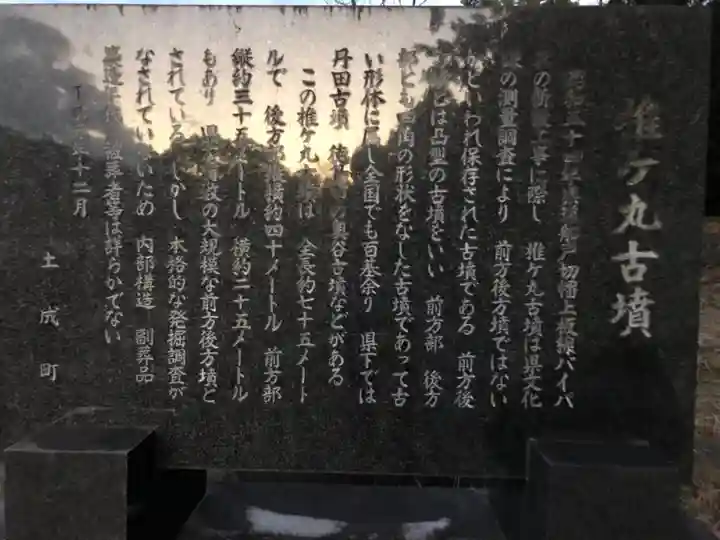 椎ケ丸古墳
昭和五十四年 県道船戸切幡上板線バイパ
スの新設工事に際し 椎ケ丸古墳は県文化
課の測量調査により 前方後方墳ではない
かといわれ保存された古墳である 前方後
とは凸型の古墳をいい 前方部 後方
部とも四角の形状をなした古墳であって古
い形体に属し全国でも百基余り 県下では
丹田古墳 の奥谷古墳などがある
この椎ケ丸古墳は 全長約七十五メート
ルで 後方部縦横約四十メートル 前方部
縦約三十五メートル 横約二十五メートル
もあり 県の大規模な前方後方墳と
されている しかし 本格的な発掘調査が
なされていないため 内部構造 副葬品
築造年代 被葬者等は詳らかでない
十二月
土成町